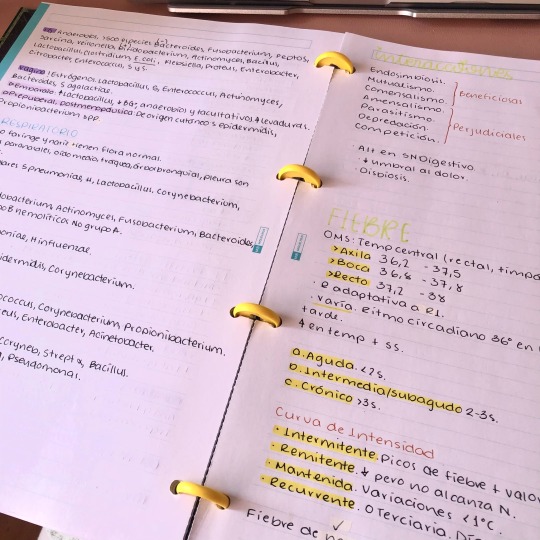 Anaerobios, 7500 especies Bacteroides, Fusobacterium, Peptos,
Sarcina, Veillonella, Bifidobacterium, Actinomyces, Bacillus,
Lactobacillus, Clostridium, E. coli, Klebsiella, Proteus, Enterobacter,
Citrobacter, Enterococcus, S y S.
Vagina: Estrógenos. Lactobacillus, G, Enterococcus, Actinomyces,
Bacteroides, S agalactiae.
Embarazo. ↑ Lactobacillus, anaerobios y facultativos ↓ levaduras.
prepuberal, postmenopáusica. De origen cutáneo S epidermidis,
Propionibacterium spp.
RESPIRATORIO
faringe y nariz tienen flora normal.
paranasales, oído medio, tráquea, árbol bronquial, pleura son
S pneumoniae, H, Lactobacillus, Corynebacterium,
Actinomyces, Fusobacterium, Bacteroides,
B hemolítica No grupo A.
H influenzae.
Corynebacterium.
Corynebacterium, Propionibacterium.
Enterobacter, Acinetobacter.
Coryneb, Strept α, Bacillus.
Pseudomonas.
Interacciones
Endosimbiosis.
Mutualismo.
Comensalismo. Beneficiosas
Amensalismo.
Parasitismo.
Depredación. Perjudiciales
Competición.
· Alt en SN Digestivo.
· ↓ umbral al dolor.
· Disbiosis.
FIEBRE
OMS: Temp central (rectal,
>Axila 36,2 -37,5
>Boca 36,8 -37,8
>Recto 37,2 -38
· R adaptativa a E1.
· varía. Ritmo circadiano 36° en
tarde.
en temp + ss.
a. Aguda. <2s.
b. Intermedia/subagudo 2-3s.
c. Crónico >3s.
Curva de Intensidad
· Intermitente. Picos de fiebre +
· Remitente. ↓ pero no alcanza N.
· Mantenida. Variaciones <1°C.
· Recurrente. O Terciaria.
Fiebre de